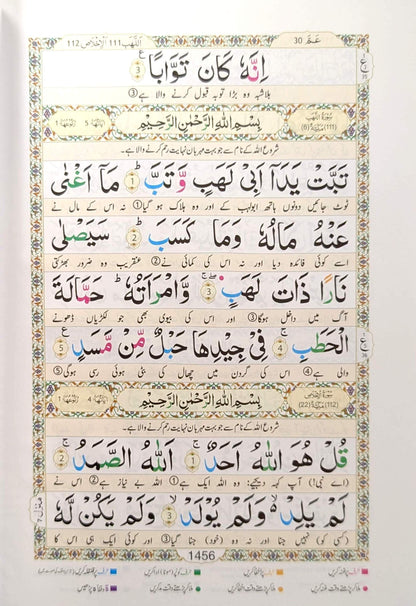 عَمَّ 30 اللَّهَب 111 اَلْاِخْلَاص 112
اِنَّهٗ كَانَ تَوَّابًا ۝3
بلاشبہ وہ بڑا توبہ قبول کرنے والا ہے ③
(111) سُوْرَةُ اللَّهَبِ (6) بِسْمِ اللّٰهِ الرَّحْمٰنِ الرَّحِيْمِ 5 1
شروع اللہ کے نام سے جو بہت مہربان نہایت رحم کرنے والا ہے۔
تَبَّتْ يَدَآ اَبِیْ لَهَبٍ وَّتَبَّ ۝1 مَاۤ اَغْنٰی
ٹوٹ جائیں دونوں ہاتھ ابولہب کے اور وہ ہلاک ہو گیا ① نہ اس کے مال نے
عَنْهُ مَالُهٗ وَمَا كَسَبَ ۝2 سَيَصْلٰی
اسے کوئی فائدہ دیا اور نہ اس کی کمائی نے ② عنقریب وہ ضرور بھڑکتی
نَارًا ذَاتَ لَهَبٍ ۝3 وَّامْرَاَتُهٗ حَمَّالَةَ
آگ میں داخل ہوگا ③ اور اس کی بیوی بھی جو لکڑیاں ڈھونے
الْحَطَبِ ۝4 فِیْ جِيْدِهَا حَبْلٌ مِّنْ مَّسَدٍ ۝5
والی ہے ④ اس کی گردن میں چھال کی بٹی ہوئی رسی ہوگی ⑤
(112) سُوْرَةُ الْاِخْلَاصِ (22) بِسْمِ اللّٰهِ الرَّحْمٰنِ الرَّحِيْمِ 4 1
شروع اللہ کے نام سے جو بہت مہربان نہایت رحم کرنے والا ہے۔
قُلْ هُوَ اللّٰهُ اَحَدٌ ۝1 اَللّٰهُ الصَّمَدُ ۝2
(اے نبی!) آپ کہہ دیجیے: وہ اللہ ایک ہے ① اللہ بے نیاز ہے ② اس نے
لَمْ يَلِدْ وَلَمْ يُوْلَدْ ۝3 وَلَمْ يَكُنْ لَّهٗ
(کسی کو) نہیں جنا اور نہ وہ (خود) جنا گیا ③ اور کوئی ایک بھی اس کا
منزل 7
1456